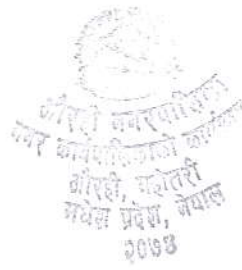 औरही नगरपालिका
नगर कार्यपालिकाको कार्यालय
औरही, महोत्तरी
मधेस प्रदेश, नेपाल
२०७४